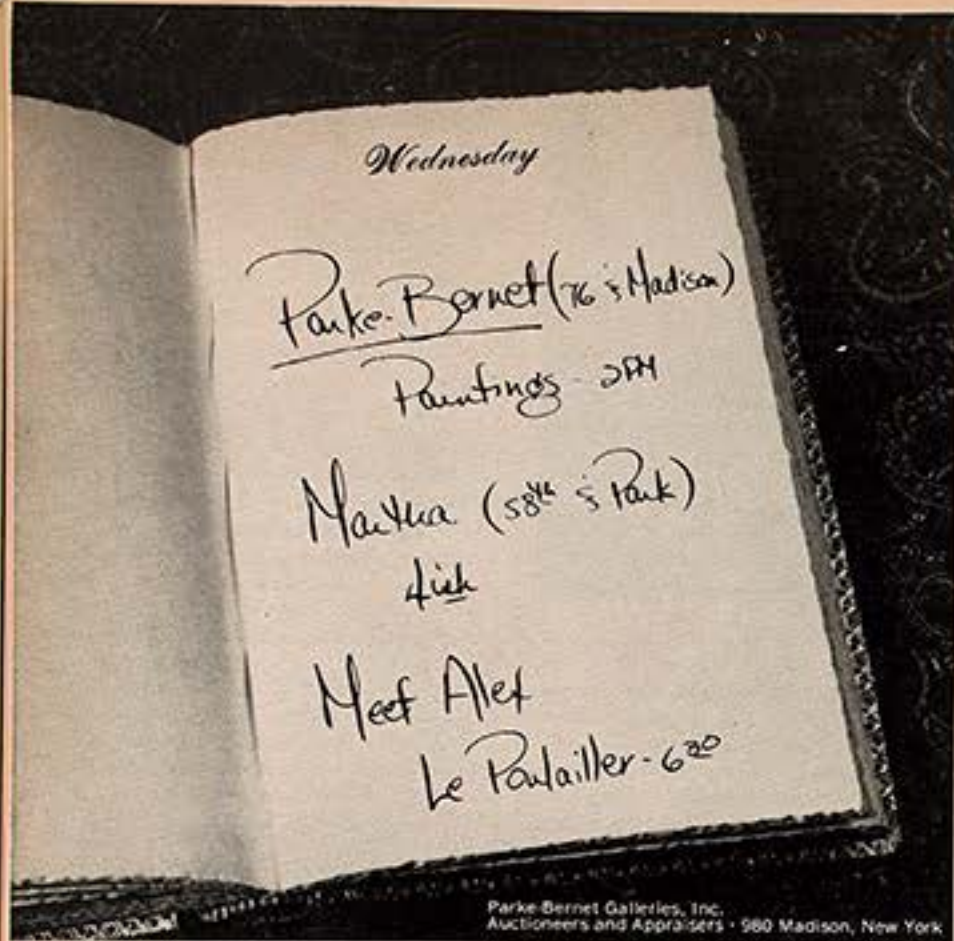 Wednesday
Parke-Bernet (76 & Madison)
Paintings - 2PM
Martha (58th & Park)
4ish
Meet Alex
Le Poulailler - 6 30
Parke-Bernet Galleries, Inc.
Auctioneers and Appraisers • 980 Madison, New York